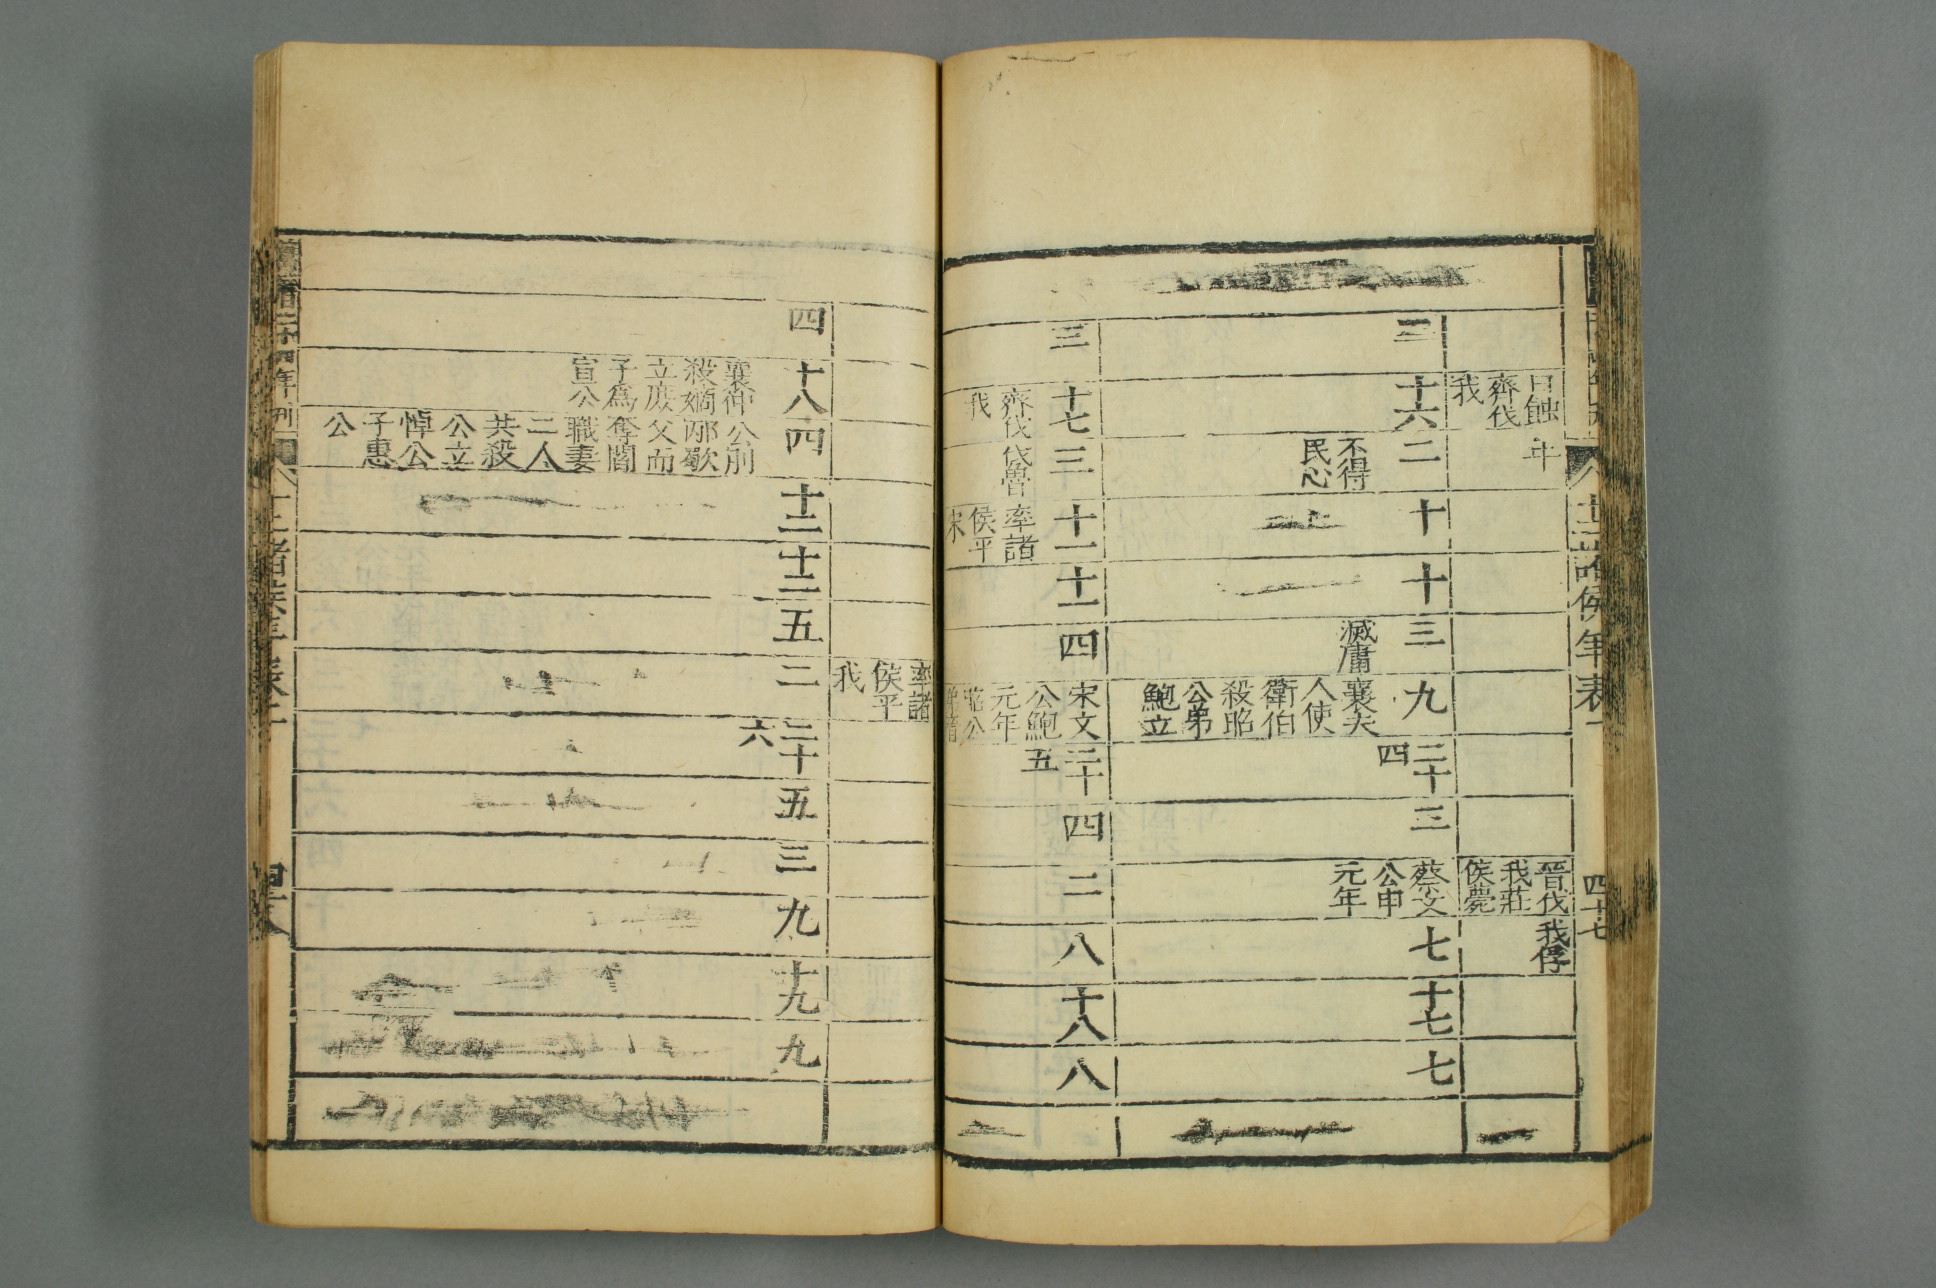 十二諸侯年表二
四十七
日蝕
齊伐
我
年
晉伐
我莊
侯薨
我俘
二
十六
二
不得
民心
十
十
三
滅庸
九
襄夫
人使
衛伯
殺昭
公弟
鮑立
二十
四
三
蔡文
公申
元年
七
十七
七
三
十七
齊伐
我
三
伐魯
十一
率諸
侯平
宋
十一
四
宋文
公鮑
元年
昭公
二十
五
四
二
八
十八
八
率諸
侯平
我
四
十八
襄仲
殺嫡
立庶
子為
宣公
四
公刖
邴歜
父而
奪閻
職妻
二人
共殺
公立
悼公
子惠
公
十二
十二
五
二
二十
六
五
三
九
十九
九
二十四年刊